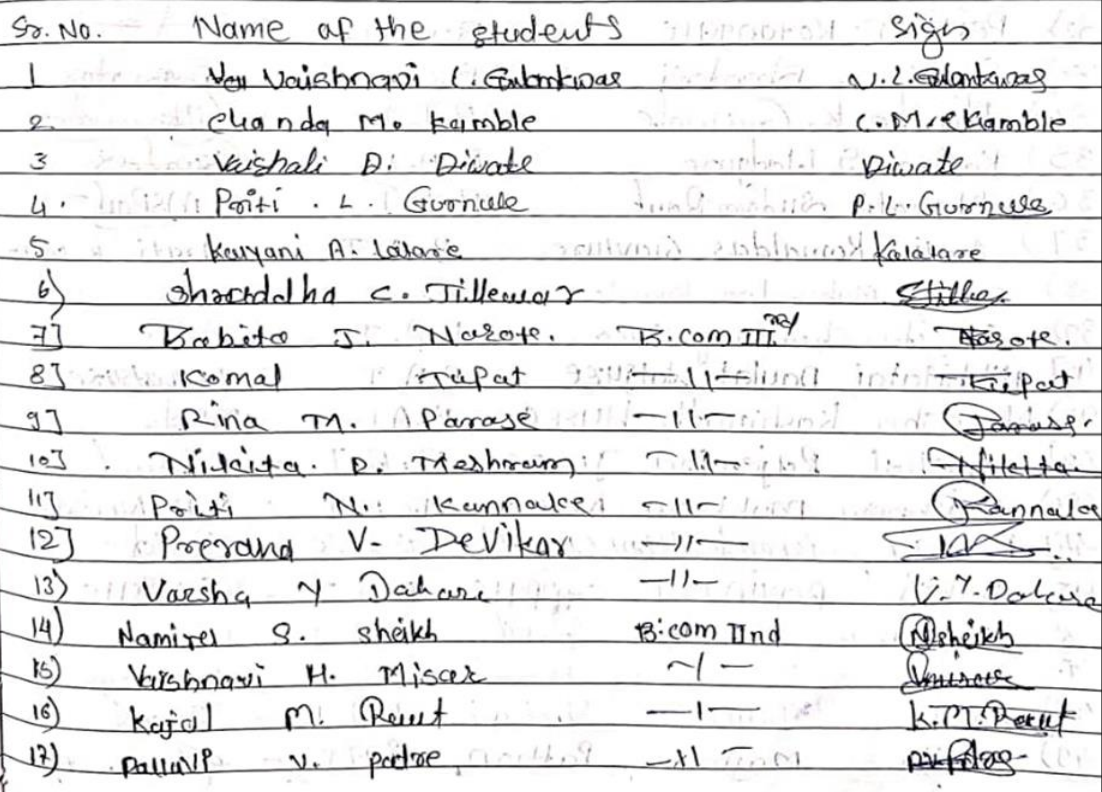 Sr. No. Name of the students Sign
1 Vaishnavi L. Gulankwar V. L. Gulankwar
2. Chanda M. Kamble C. M. Kamble
3 Vaishali D. Diwate Diwate
4. Priti . L . Gurnule P. L. Gurnule
5 Kalyani A. Latare Kalatare
6) Shraddha C. Jillewar
7] Babita J. Narote. B.com III rd Narote.
8] Komal Tupat —11— Tupat
9] Rina M. Parase —11— Parase.
10] Nikita. D. Meshram —11— Nikita.
11] Priti N. Kannake —11— Kannake
12] Prerana V- Devikar —11—
13) Varsha Y Dahare —11— V. Y. Dahare
14) S. Sheikh B.com IInd Nsheikh
15) Vaishnavi H. Misar ~1—
16) Kajal M. Raut —1— K. M. Raut
17) Pallavi V. padre —11—